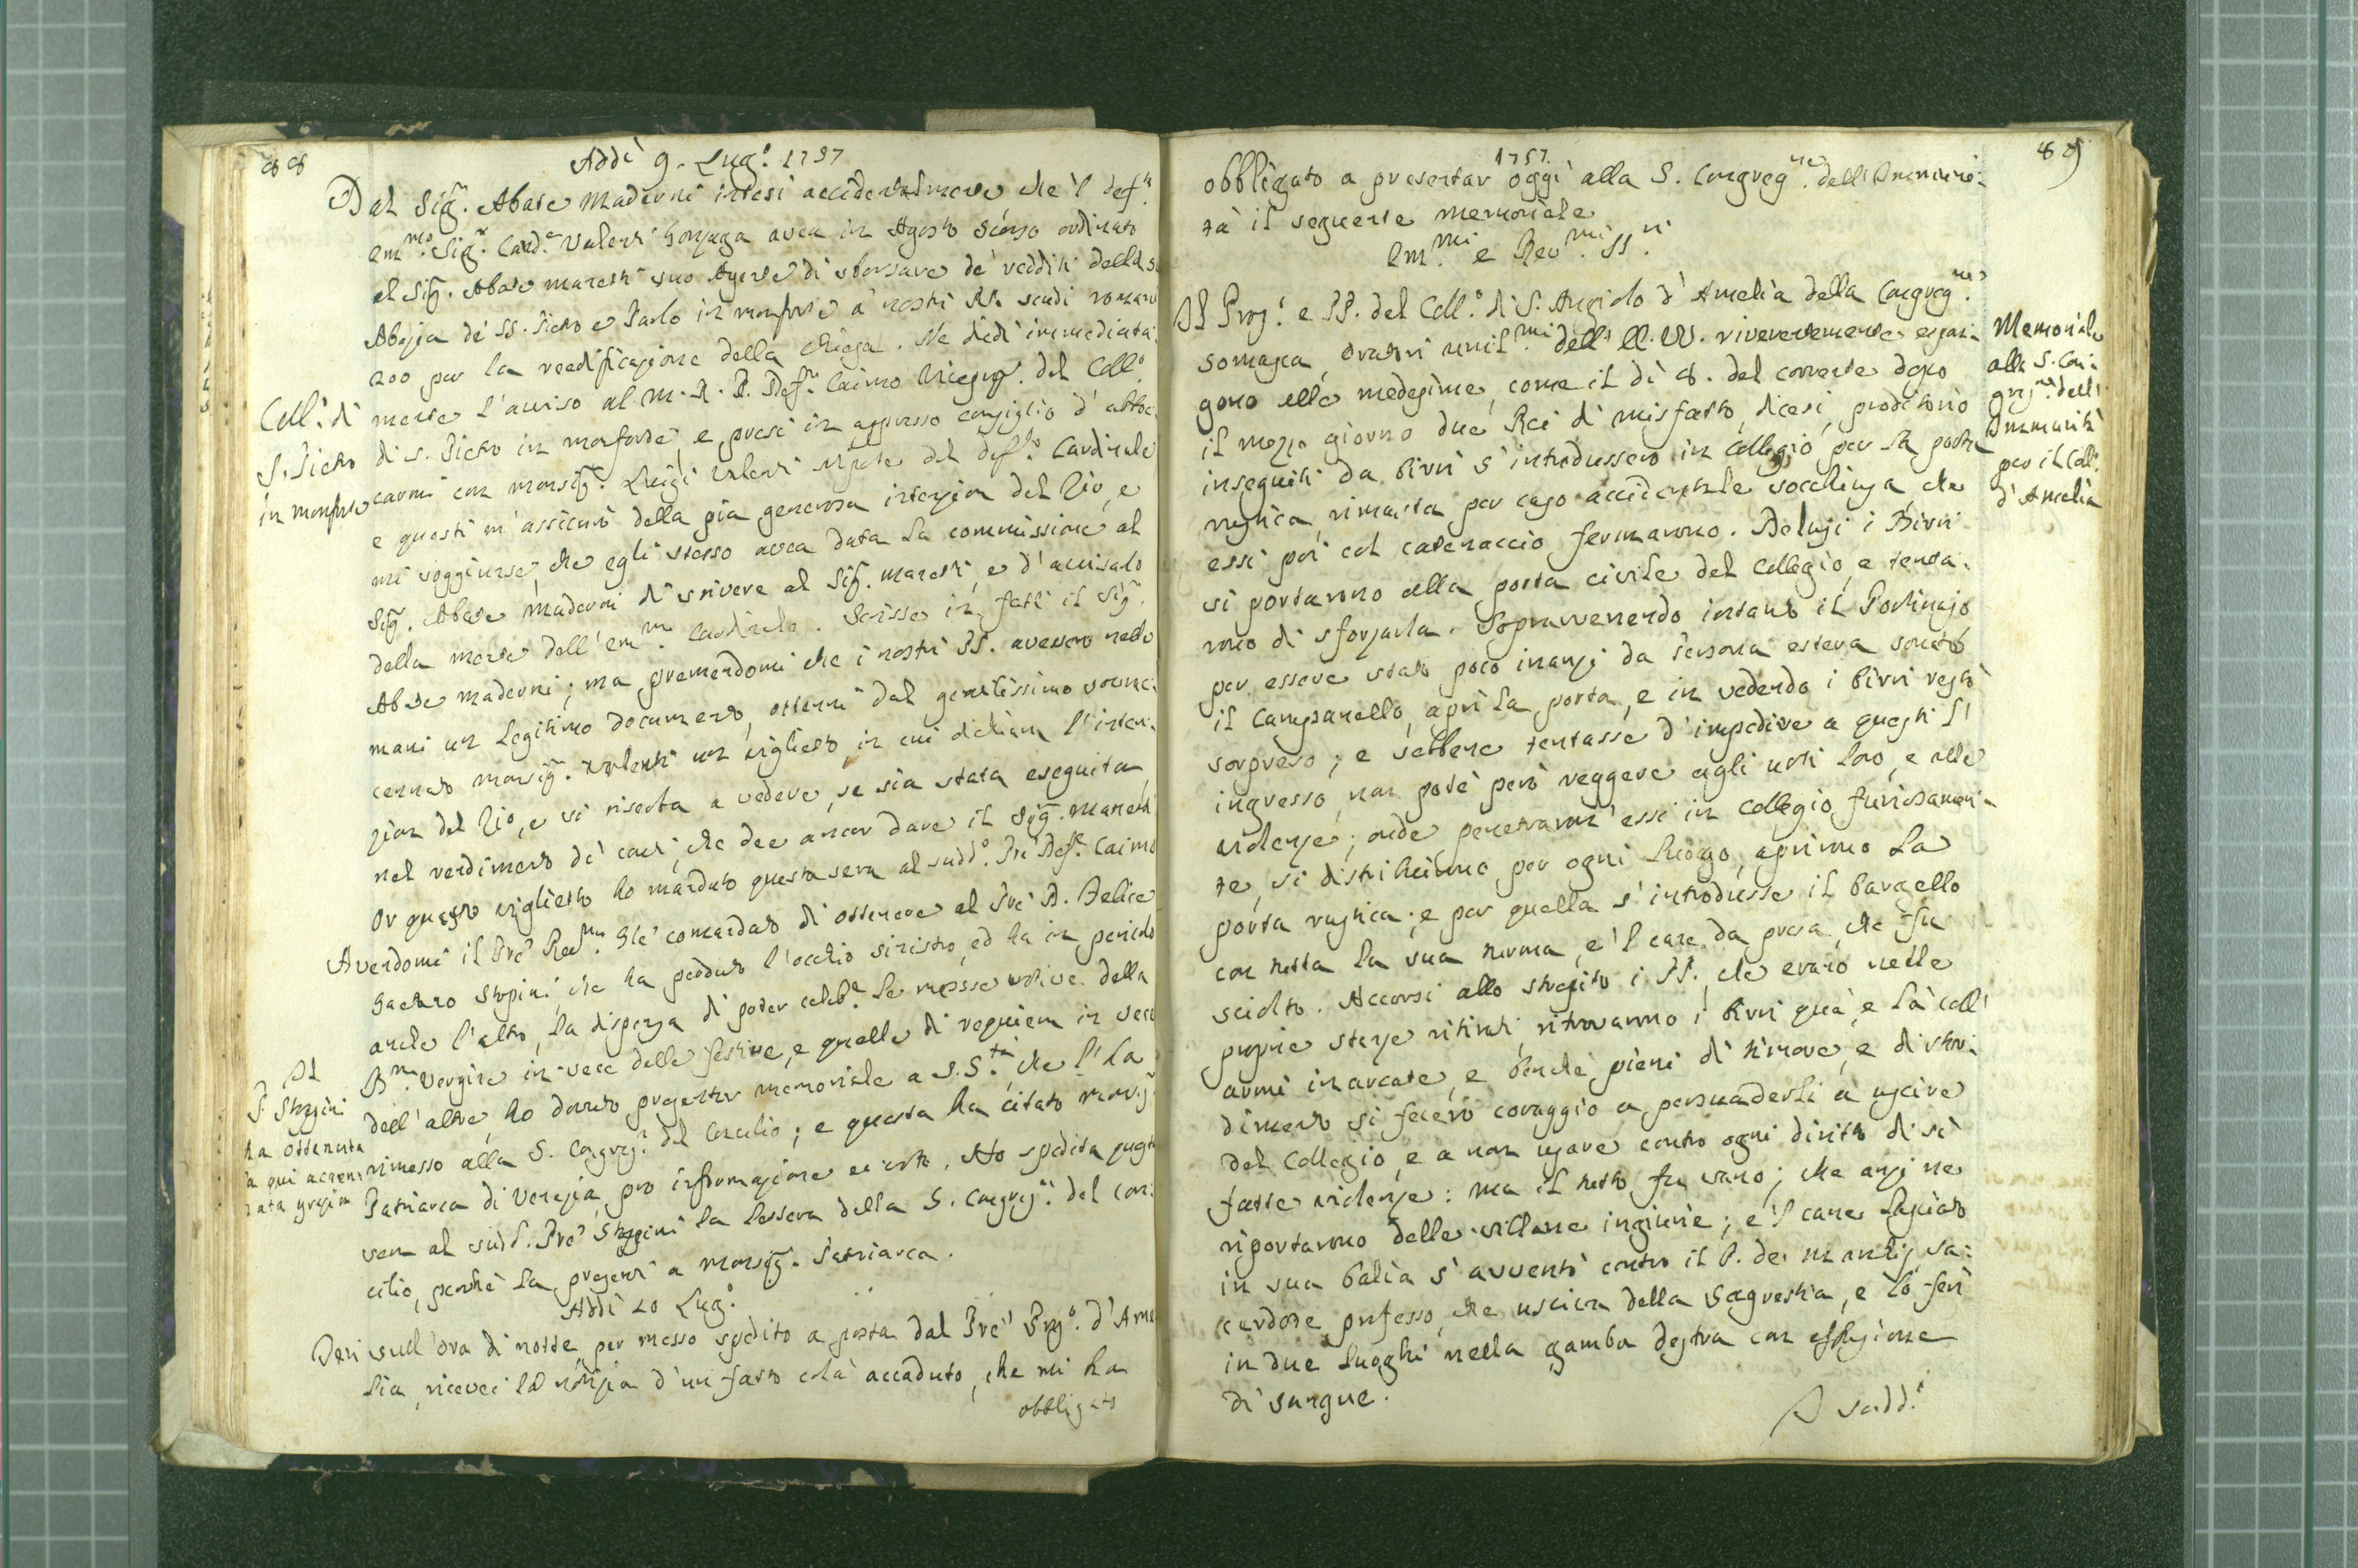 88
Addì 9. Lug.º 1757
Dal Sig.r Abate Maderni intesi accidentalmente che 'l def.to
Em.mo Sig.r Card.e Valenti Gonzaga avea in Agosto scorso ordinato
al Sig.r Abate Maretti suo Agente di sborsare de' redditi della sua
Abazia de' SS. Pietro e Paolo in Monforte a' nostri PP. scudi romani
200 per la reedificazione della Chiesa. Ne diedi immediata:
mente l'avviso al M. R. P. Def.re Caimo Viceprep.º del Coll.º
Coll.º di
S. Pietro
in Monforte
di S. Pietro in Monforte, e presi in appresso consiglio d'abboc:
carmi con Monsig.r Luigi Valenti nipote del def.to Cardinale
e questi m'assicurò della pia generosa intenzion del Zio, e
mi soggiunse, che egli stesso avea data la commissione al
Sig.r Abate Maderni di scrivere al Sig.r Maretti, e d'avvisarlo
della morte dell'Em.mo Cardinale. Scrisse in fatti il Sig.r
Abate Maderni; ma premendomi che i nostri PP. avessero nelle
mani un legitimo documento, ottenni dal gentilissimo sovrac:
cennato Monsig.r Valenti un viglietto, in cui dichiara l'inten:
zion del Zio, e si riserba a vedere, se sia stata eseguita
nel rendimento de' conti, che dee ancor dare il Sig.r Maretti
Or questo viglietto ho mandato questa sera al sudd.º Pre Def.re Caimo
Avendomi il Pre Rev.mo Gle comandato di ottenere al Pre D. Felice
Gaetano Stopini, che ha perduto l'occhio sinistro, ed ha in pericolo
anche l'altro, la dispensa di poter celeb.e le messe votive della
B.ma Vergine in vece delle festive, e quelle di requiem in vece
dell'altre, ho dovuto presentar memoriale a S. S.tà, che l'ha
rimesso alla S. Congreg.e del Concilio; e questa ha citato Monsig.r
Patriarca di Venezia pro informazione et voto. Ho spedita questa
sera al sudd. Pre Stopini la lettera della S. Congreg.ne del Con:
cilio, perchè la presenti a Monsig.r Patriarca.
Il
P. Stopini
ha ottenuta
la qui accen:
nata grazia
Addì 10 Lug.º
Ieri sull'ora di notte per messo spedito a posta dal Pre Prep.º d'Ame
lia, ricevei la notizia d'un fatto colà accaduto, che mi ha
obbligato
1757.
89
obbligato a presentar oggi alla S. Congreg.ne dell'Immuni:
tà il seguente memoriale
Em.mi e Rev.mi SS.ri
Il Prep.º e PP. del Coll.º di S. Angiolo d'Amelia della Congreg.ne
Somasca, Oratori umil.mi dell'EE. VV. riverentemente espon:
gono alle medesime, come il dì 8. del corrente dopo
il mezzo giorno due Rei di misfatto, dicesi, proditorio
inseguiti da birri s'introdussero in Collegio per la porta
rustica, rimasta per caso accidentale socchiusa, che
essi poi col catenaccio fermarono. Delusi i Birri
si portarono alla porta civile del Collegio, e tenta:
rono di sforzarla. Sopravvenendo intanto il Portinajo
per essere stato poco inanzi da Persona estera sonato
il Campanello, aprì la porta, e in vedendo i birri restò
sorpreso; e sebbene tentasse d'impedire a questi l'
ingresso, non potè però reggere agli urti loro, e alle
violenze; onde penetraron' essi in Collegio furiosamen:
te, si distribuirono per ogni luogo, aprirono la
porta rustica; e per quella s'introdusse il bargello
con tutta la sua turma, e 'l cane da presa, che fu
sciolto. Accorsi allo strepito i PP. che erano nelle
proprie stanze ritirati, ritrovarono i birri quà, e là coll'
armi inarcate, e benchè pieni di timore, e di stor:
dimento si fecero coraggio a persuaderli a uscire
del Collegio, e a non usare contro ogni diritto di sì
fatte violenze: ma il tutto fu vano; che anzi ne
riportarono delle villane ingiurie; e 'l cane lasciato
in sua balìa s'avventò contro il P. de sa:
cerdote professo, che usciva della Sagrestia, e lo ferì
in due luoghi nella gamba destra con effusione
di sangue.
I sudd.i
Memoriale
alla S. Con:
greg.ne dell'
Immunità
per il Coll.
d'Amelia